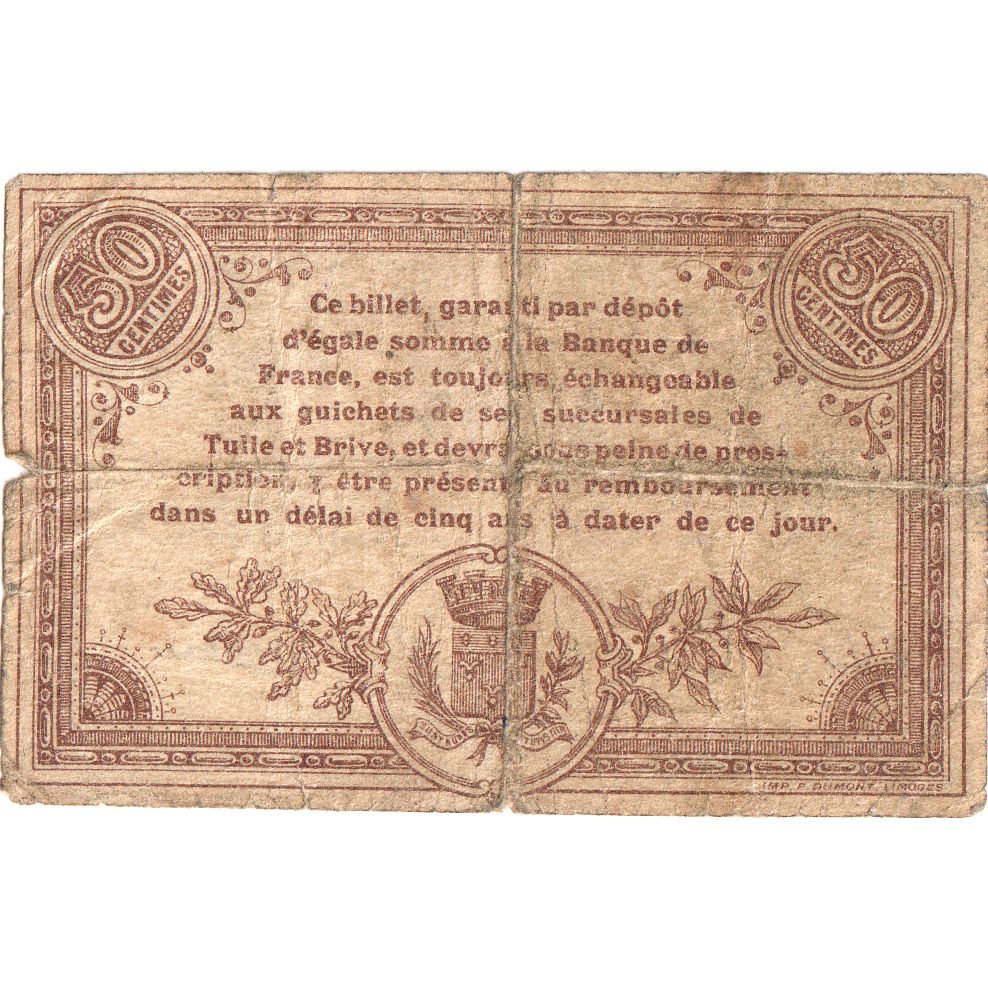 50
CENTIMES
50
CENTIMES
Ce billet, garanti par dépôt
d'égale somme à la Banque de
France, est toujours échangeable
aux guichets de ses succursales de
Tulle et Brive, et devra sous peine de pres-
cription, y être présenté au remboursement
dans un délai de cinq ans à dater de ce jour.
IMP. P. DUMONT, LIMOGES